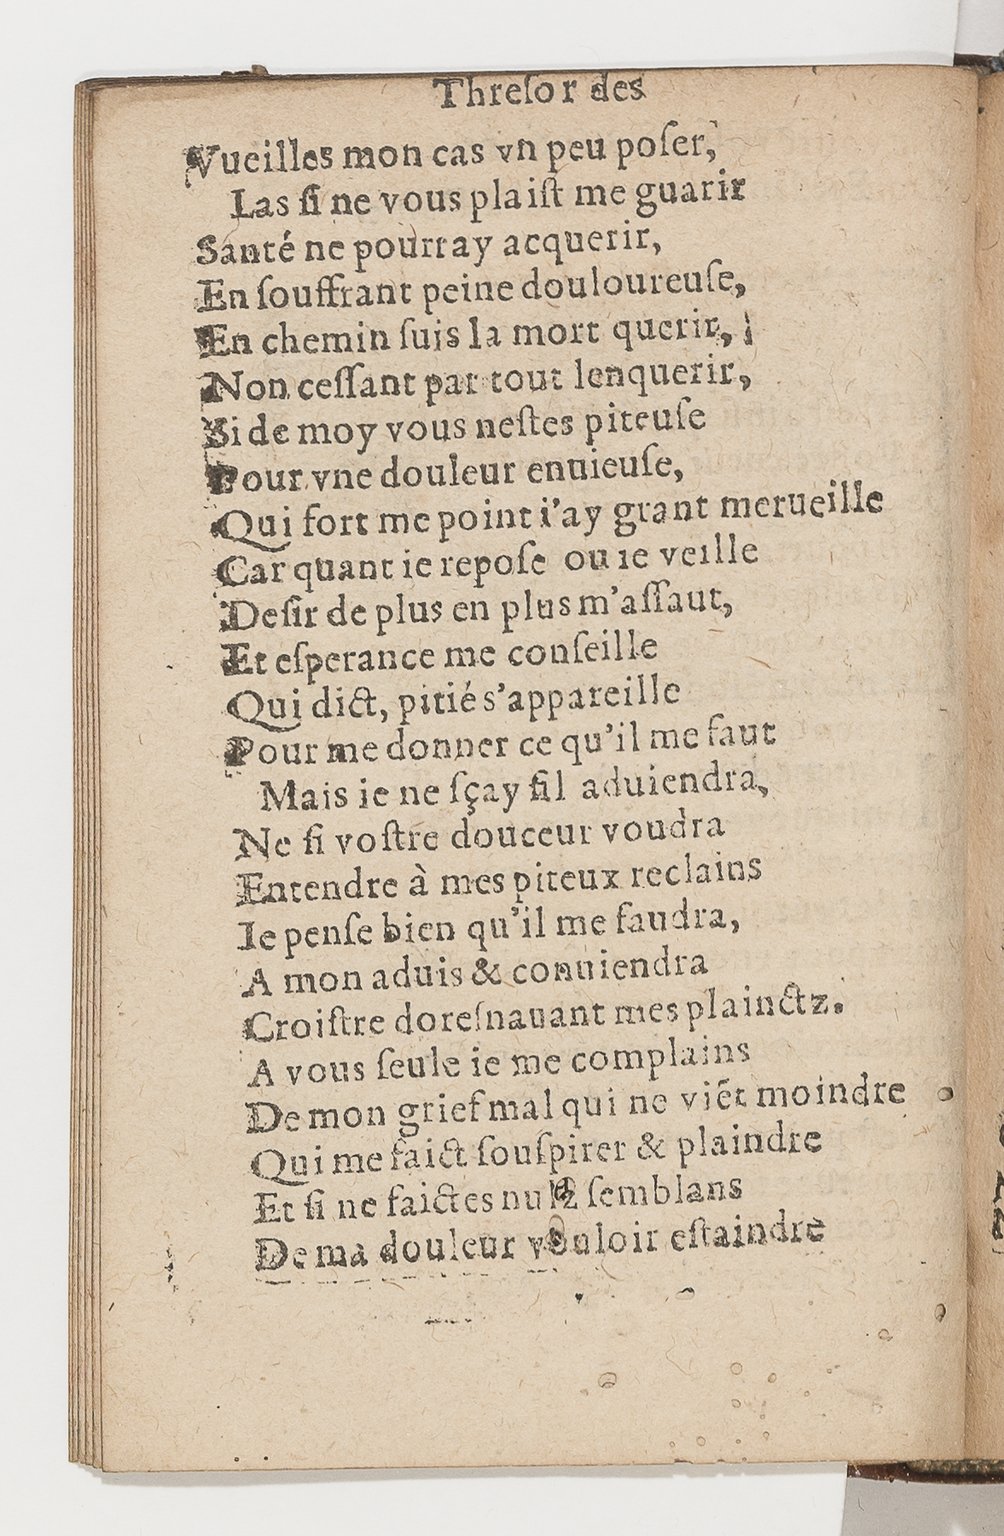 Threſor des
Vueilles mon cas vn peu poſer,
Las ſi ne vous plaiſt me guarir
Santé ne pourray acquerir,
En ſouffrant peine douloureuſe,
En chemin ſuis la mort querir,
Non ceſſant par tout lenquerir,
Si de moy vous neſtes piteuſe
Pour vne douleur enuieuſe,
Qui fort me point i'ay grant merueille
Car quant ie repoſe ou ie veille
Deſir de plus en plus m'aſſaut,
Et eſperance me conſeille
Qui dict, pitié s'appareille
Pour me donner ce qu'il me faut
Mais ie ne ſçay ſil aduiendra,
Ne ſi voſtre douceur voudra
Entendre à mes piteux reclains
Ie penſe bien qu'il me faudra,
A mon aduis & conuiendra
Croiſtre doreſnauant mes plainctz.
A vous ſeule ie me complains
De mon grief mal qui ne viẽt moindre
Qui me faict ſouſpirer & plaindre
Et ſi ne faictes nulz ſemblans
De ma douleur vouloir eſtaindre